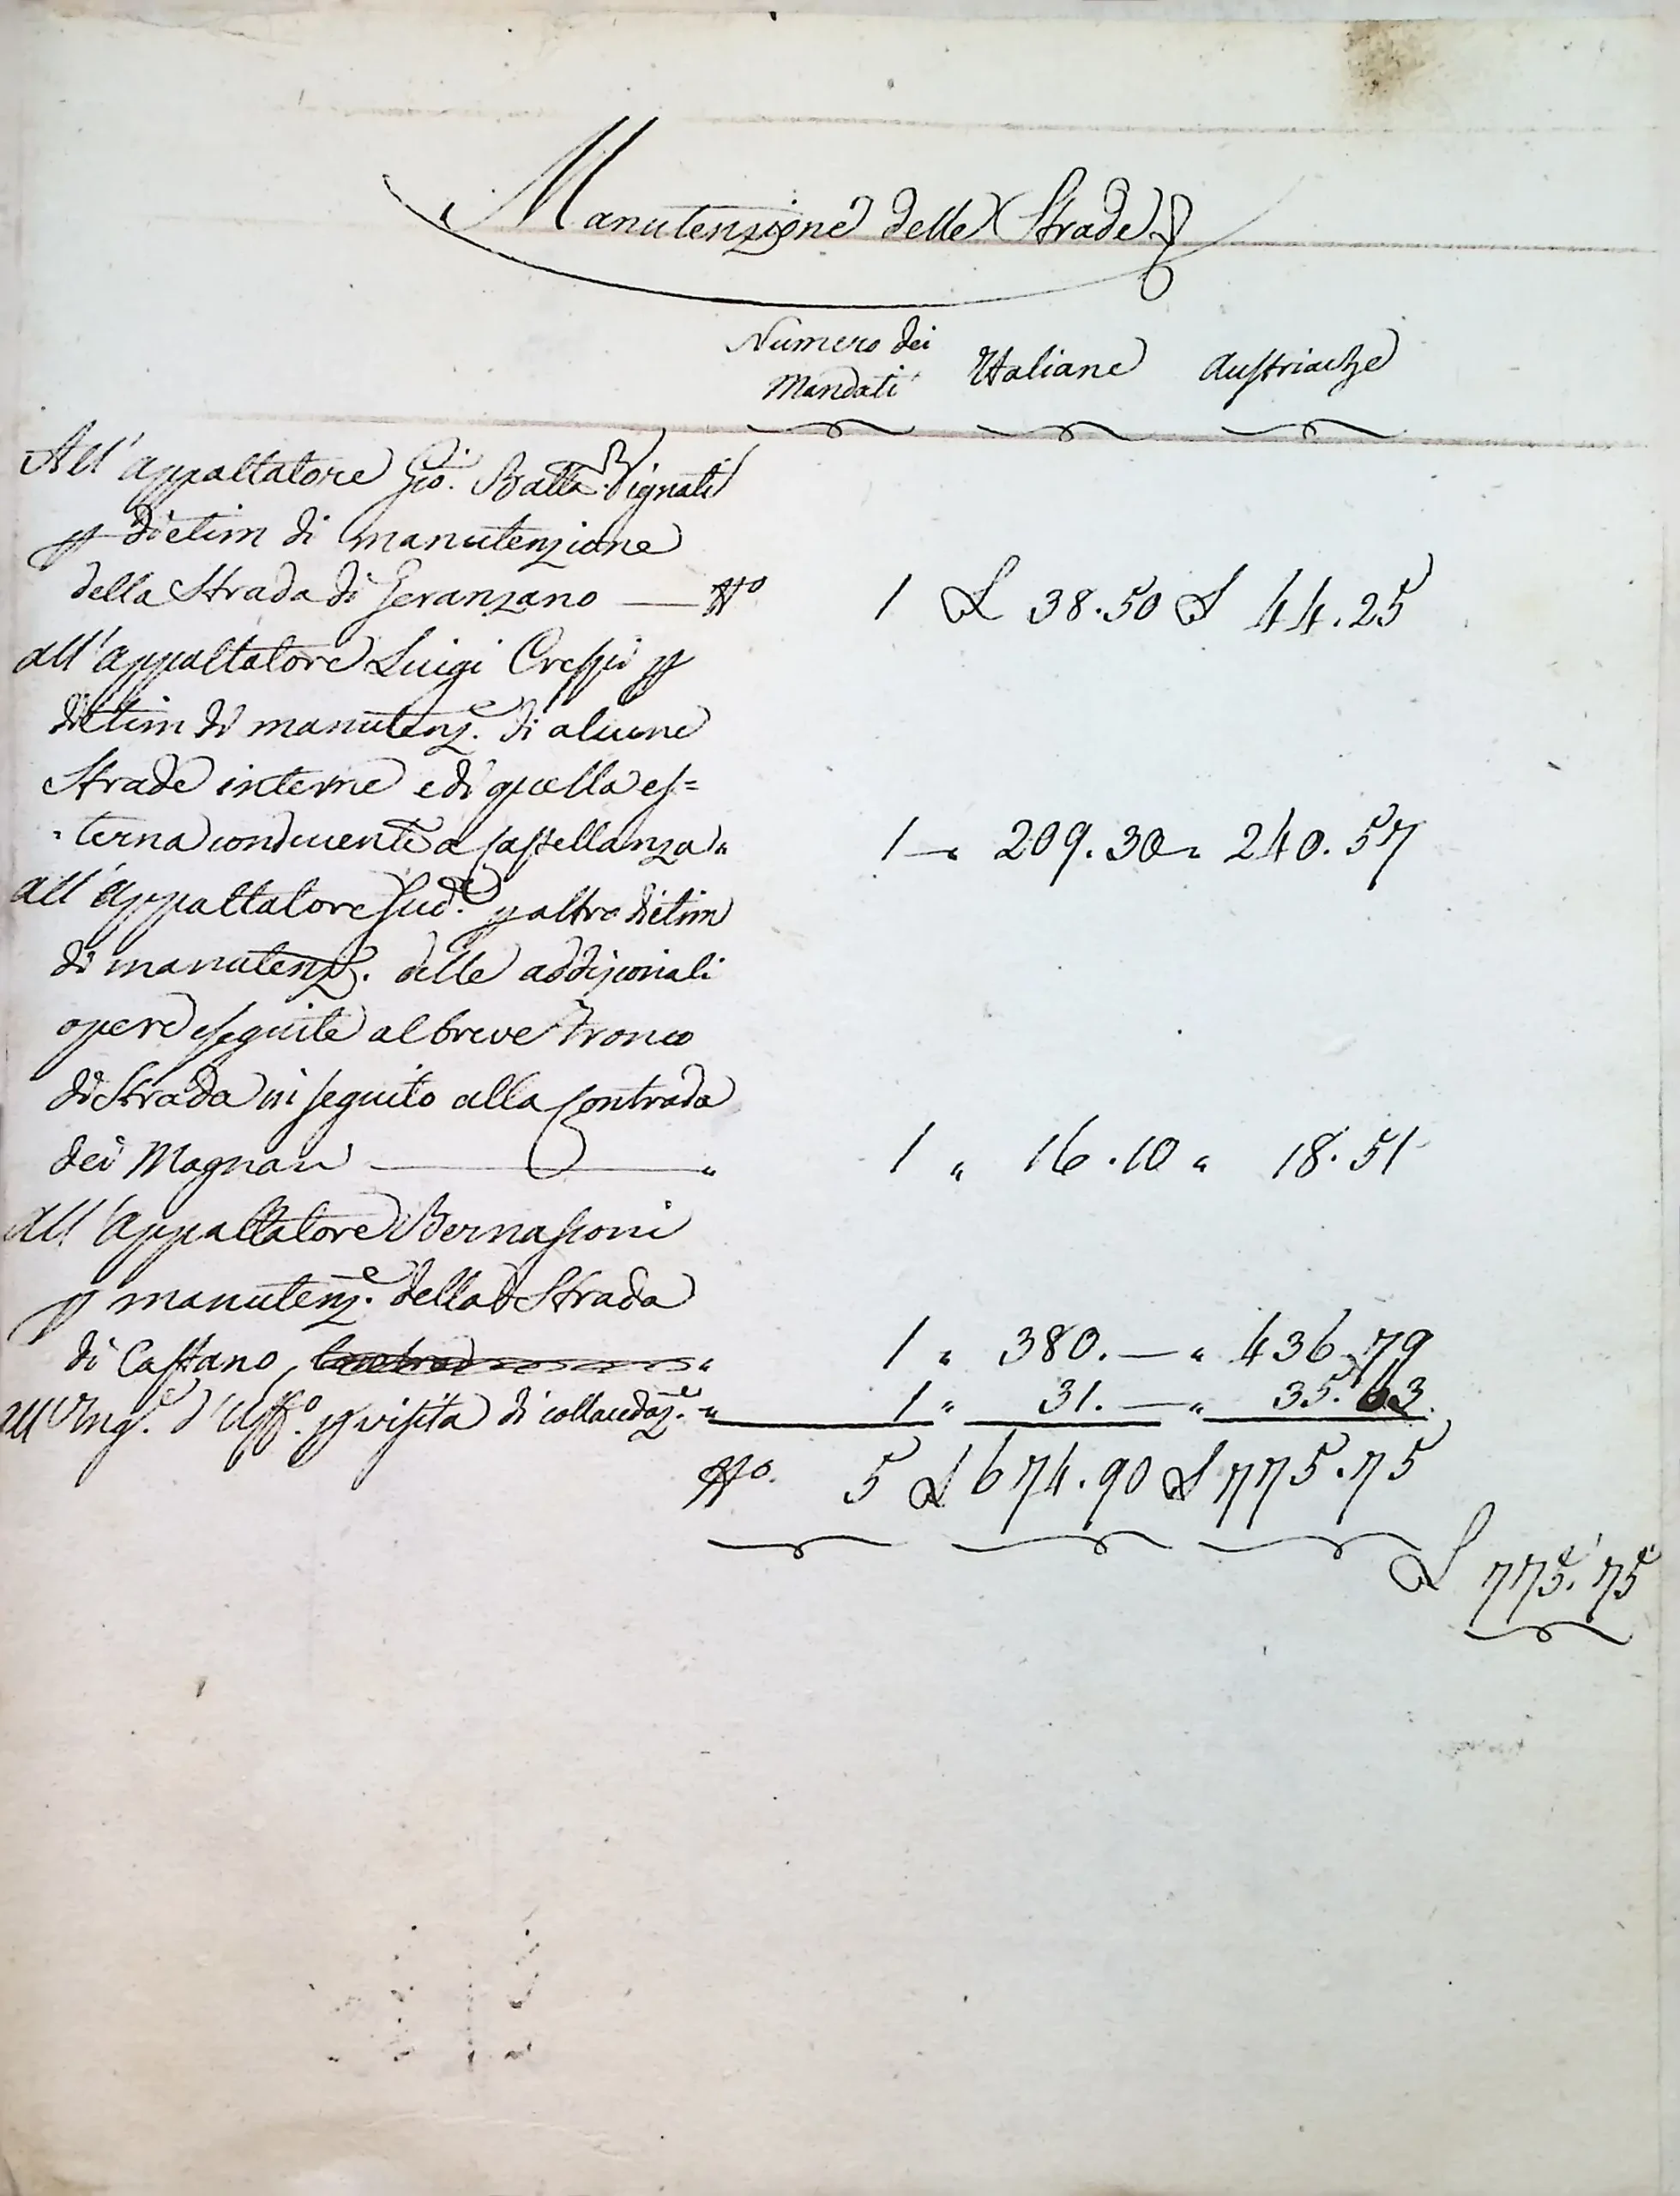 Manutenzione delle Strade
Numero dei Mandati Italiane Austriache
All' appaltatore Gio. Batta. Pignati
p dietim di manutenzione
della Strada di Geranzano — N.o 1 L 38.50 L 44.25
all' appaltatore Luigi Crespi p
dietim di manutenz.e di alcune
Strade interne e di quella es=
=terna conducente a Castellanza " 1 — " 209.30 " 240.57
all' appaltatore Sud.o p altro dietim
di manutenz.e delle addizionali
opere eseguite al breve tronco
di Strada in seguito alla Contrada
dei Magnan — " 1 " 16.10 " 18.51
all' appaltatore Bernasconi
p manutenz.e della Strada
di Castano, " 1 " 380.— " 436.79
all' Ing.e d'Uff.o p visita di collaudaz.e " 1 " 31.— " 35.63.
N.o 5 L 674.90 L 775.75
L 775.75